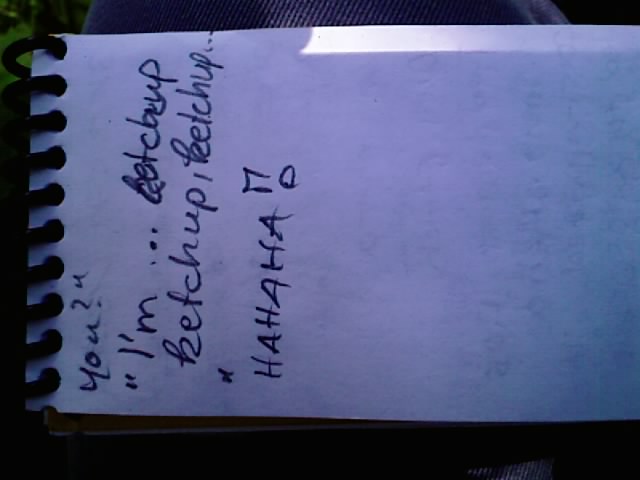 you?"
"I'm... ketchup
ketchup, ketchup...
"
HAHAHA!